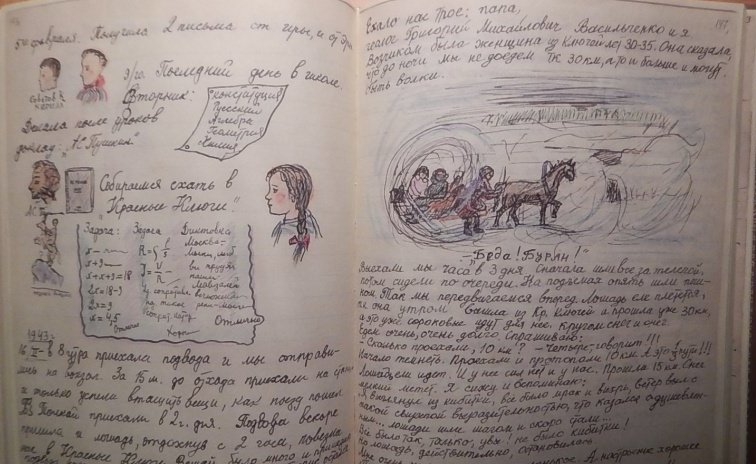 5го февраля. Получила 2 письма от Иры, и от Эри.
9го. Последний день в школе.
Вторник:
Конституция
Русский
Алгебра
Геометрия
Химия
Делала после уроков
доклад: "А. Пушкин"
Собираемся ехать в
"Красные Ключи".
Задача:
x+9
x+x+9=18
2x=18-9
2x=9
x=4,5
Отлично
Задача
Хорошо
Диктовка
Москва-
Отлично
1943г.
16 II - в 8 утра приехала подвода и мы отправи-
лись на вокзал. За 15 м. до отхода приехали на
и только успели втащить вещи, как поезд пошел.
В приехали в 2 ч. дня. Подвода вскоре
пришла и лошадь, отдохнув с 2 часа, повезла
нас в Красные Ключи. Вещей было много и
147.
Ехало нас трое: папа,
геолог Григорий Михайлович Васильченко и я
Возчиком была женщина из Ключей лет 30-35. Она сказала,
что до ночи мы не доедем т.к 30 км, а то и больше и могут
быть волки.
- Беда! Буран!"
Выехали мы часа в 3 дня. Сначала шли все за телегой,
потом сидели по очереди. На подъемах опять шли пеш-
ком. Так мы передвигаемся вперед. Лошадь еле плетется,
т.к она утром вышла из Кр. Ключей и прошла уже 30 км,
а это уже сороковые идут для нее. Кругом снег и снег.
Едем очень, очень долго. Спрашиваю:
- Сколько проехали, 10 км? - Четыре - говорит!!!
Начало темнеть. Проехали и протопали 10 км. А это 1/3 пути!!!
Лошадь ели идет. И у нее сил нет и у нас. Прошли 15 км. Снег
мелкий метет. Я сижу и вспоминаю:
"Я выглянул из кибитки, все было мрак и вихрь, ветер выл с
такой свирепой выразительностью, что казался одушевлен-
ным... лошади шли шагом и скоро стали..."
Все было так, только, увы! не было кибитки!
Но лошадь, действительно, остановилась